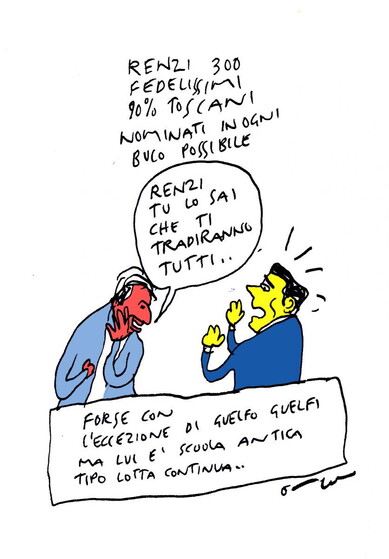 RENZI 300
FEDELISSIMI
90% TOSCANI
NOMINATI IN OGNI
BUCO POSSIBILE
RENZI
TU LO SAI
CHE TI
TRADIRANNO
TUTTI..
FORSE CON
L'ECCEZIONE DI GUELFO GUELFI
MA LUI E' SCUOLA ANTICA
TIPO LOTTA CONTINUA..